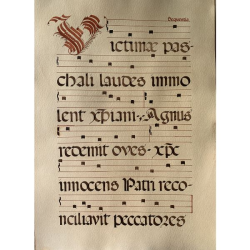 Sequentia
Victimæ pas-
chali laudes immo
lent xp̄iani. Agnus
redemit oves· xp̄c
innocens Patri reco-
nciliavit peccatores